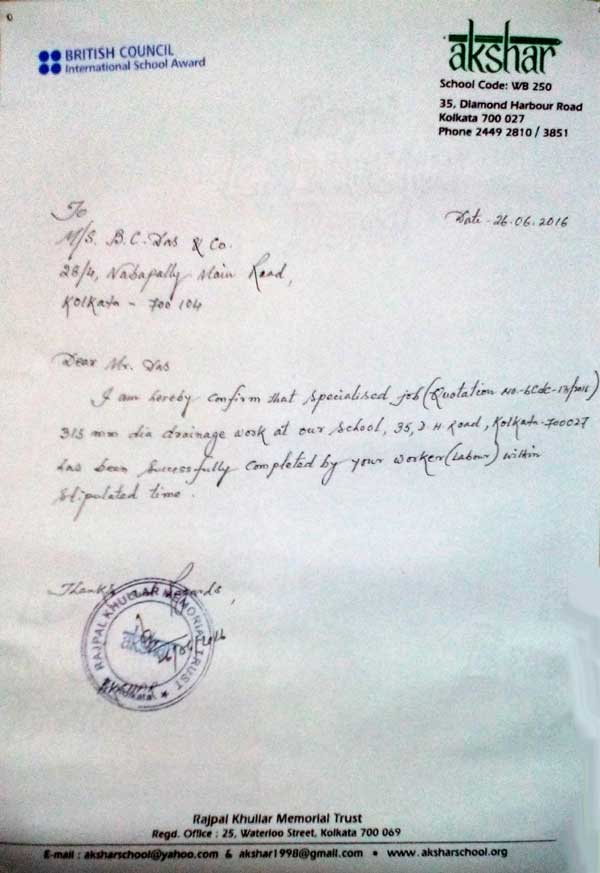 BRITISH COUNCIL
International School Award
akshar
School Code: WB 250
35, Diamond Harbour Road
Kolkata 700 027
Phone 2449 2810 / 3851
Date - 26.06.2016
To
M/S. B.C. Das & Co.
28/4, Nabapally Main Road,
Kolkata - 700 104
Dear Mr. Das
I am hereby confirm that specialised job (Quotation No.
315 mm dia drainage work at our school, 35, D. H. Road, Kolkata-700027
has been successfully completed by your worker (Labour) within
stipulated time.
RAJPAL KHULLAR MEMORIAL TRUST
akshar
Kolkata
Rajpal Khullar Memorial Trust
Regd. Office : 25, Waterloo Street, Kolkata 700 069
E-mail : aksharschool@yahoo.com & akshar1998@gmail.com • www.aksharschool.org